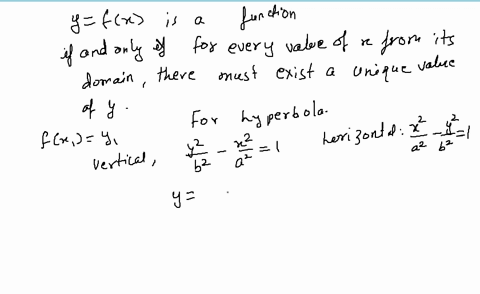 y = f(x) is a function
if and only if for every value of x from its
domain, there must exist a unique value
of y.
For hyperbola.
f(x₁) = y₁
vertical, y²/b² - x²/a² = 1
horizontal: x²/a² - y²/b² = 1
y =